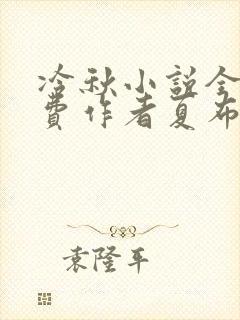 冷秋小説全
費作者夏布
袁隆平